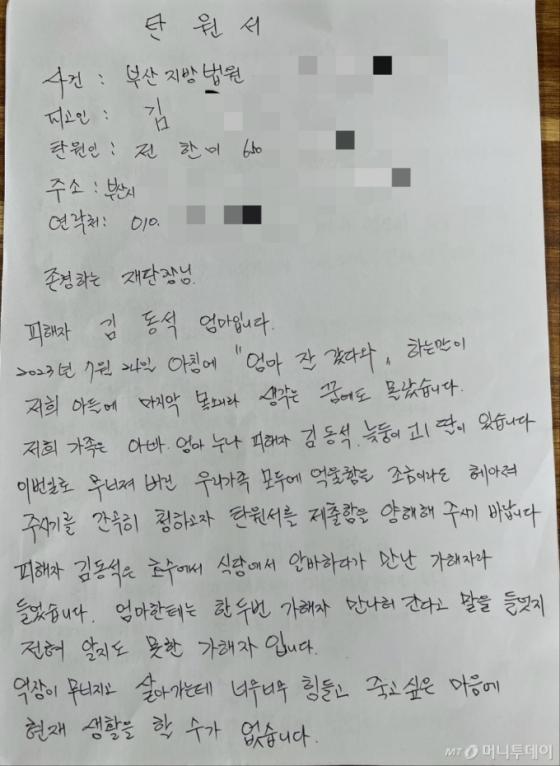 탄 원 서
사건 : 부산지방법원
피고인 : 김
탄원인 : 전 한 미 6
주소 : 부산시
연락처 : 010.
존경하는 재판장님.
피해자 김 동석 엄마입니다.
2023년 7월 24일 아침에 "엄마 잔 갔다와, 하는만이
저희 아들에 마지막 목소리라 생각는 꿈에도 몰랐습니다.
저희 가족은 아빠. 엄마 누나 피해자 김동석. 늦둥이 고1 딸이 있습니다
이번일로 무너져 버린 우리가족 모두에 억울함을 조금이라도 헤아려
주시기를 간곡히 청하고자 탄원서를 제출함을 양해해 주시기 바랍니다
피해자 김동석은 호주에서 식당에서 알바하다가 만난 가해자라
들었습니다. 엄마한테는 한두번 가해자 만나러 간다고 말을 들었지
전혀 알지도 못한 가해자 입니다.
억장이 무너지고 살아가는데 너무너무 힘들고 죽고싶은 마음에
현재 생활을 할 수가 없습니다.
MT 머니투데이